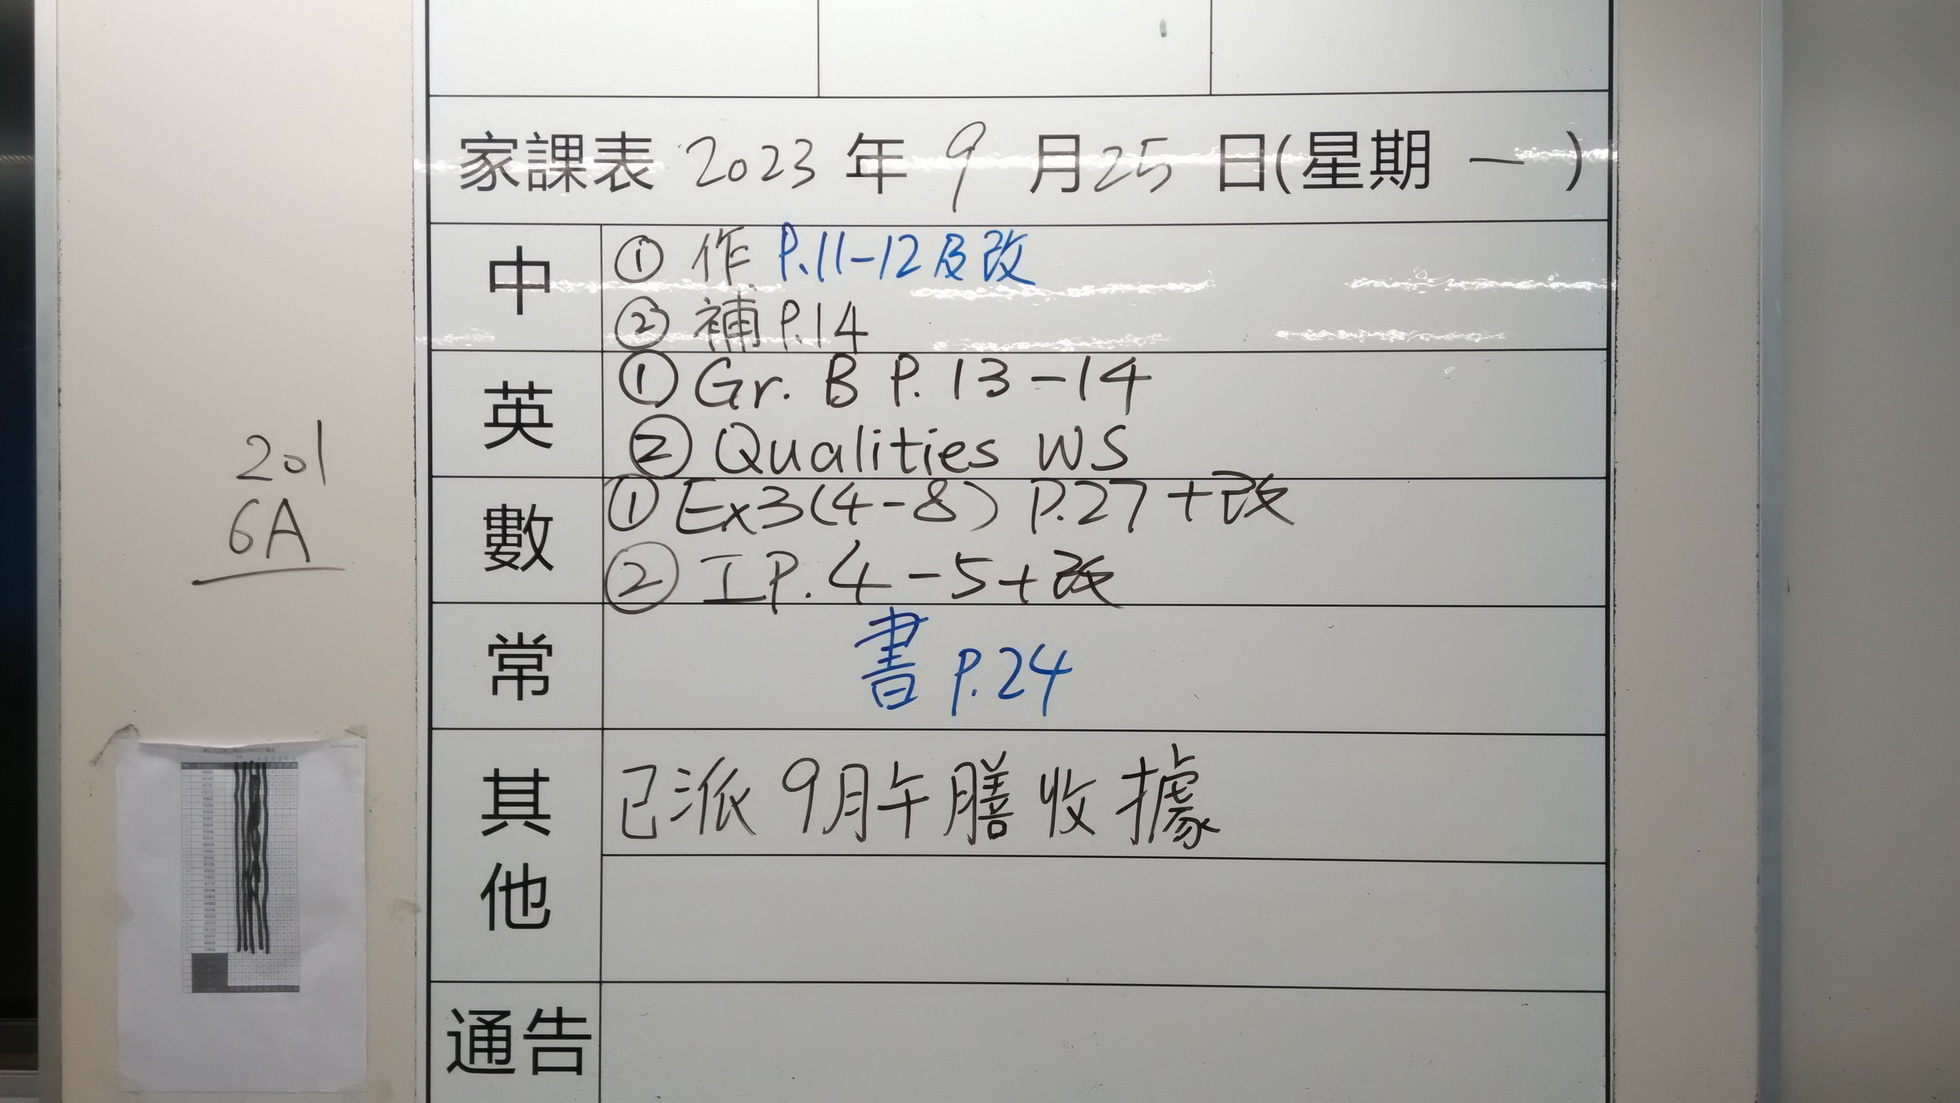 家課表 2023 年 9 月 25 日(星期 一 )
中
① 作 P.11-12及改
② 補 P.14
英
① Gr. B P. 13-14
② Qualities WS
數
① Ex3(4-8) P.27+改
② I P. 4-5+改
常
書 P.24
其他
已派 9月午膳收據
通告
201
6A